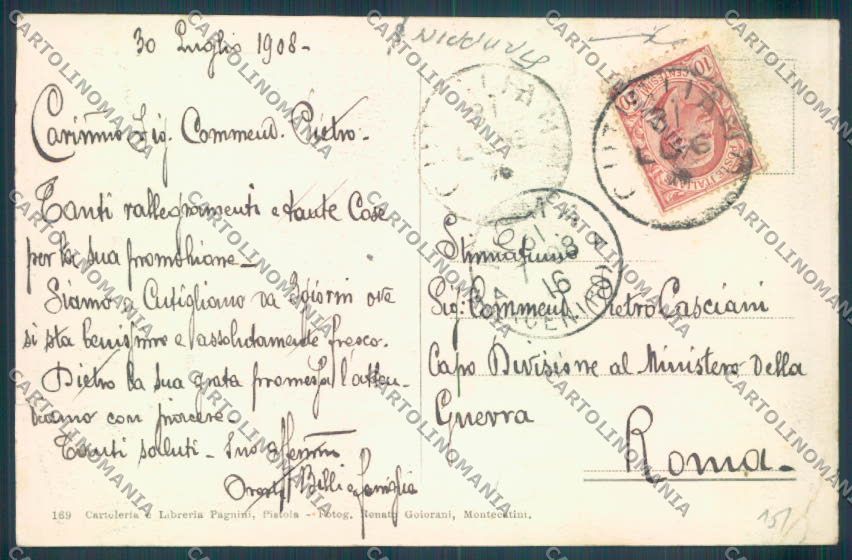 30 Luglio 1908-
Carissimo Sig. Commend. Pietro-
Tanti rallegramenti e tante cose
per la sua promozione-
Siamo a Cutigliano da giorni ove
si sta benissimo e assolutamente fresco.
Dietro la sua grata promessa l'atten-
diamo con piacere-
Tanti saluti- Suo affemo
Oreste Billi e famiglia
Stimatissimo
Sig: Commend. Pietro Casciani
Capo Divisione al Ministero della
Guerra
Roma-
CUTIGLIANO
16
POSTE ITALIANE
CENTESIMI
10
10
169 Cartoleria e Libreria Pagnini, Pistoia - Fotog. Renato Goiorani, Montecatini.
CARTOLINOMANIA